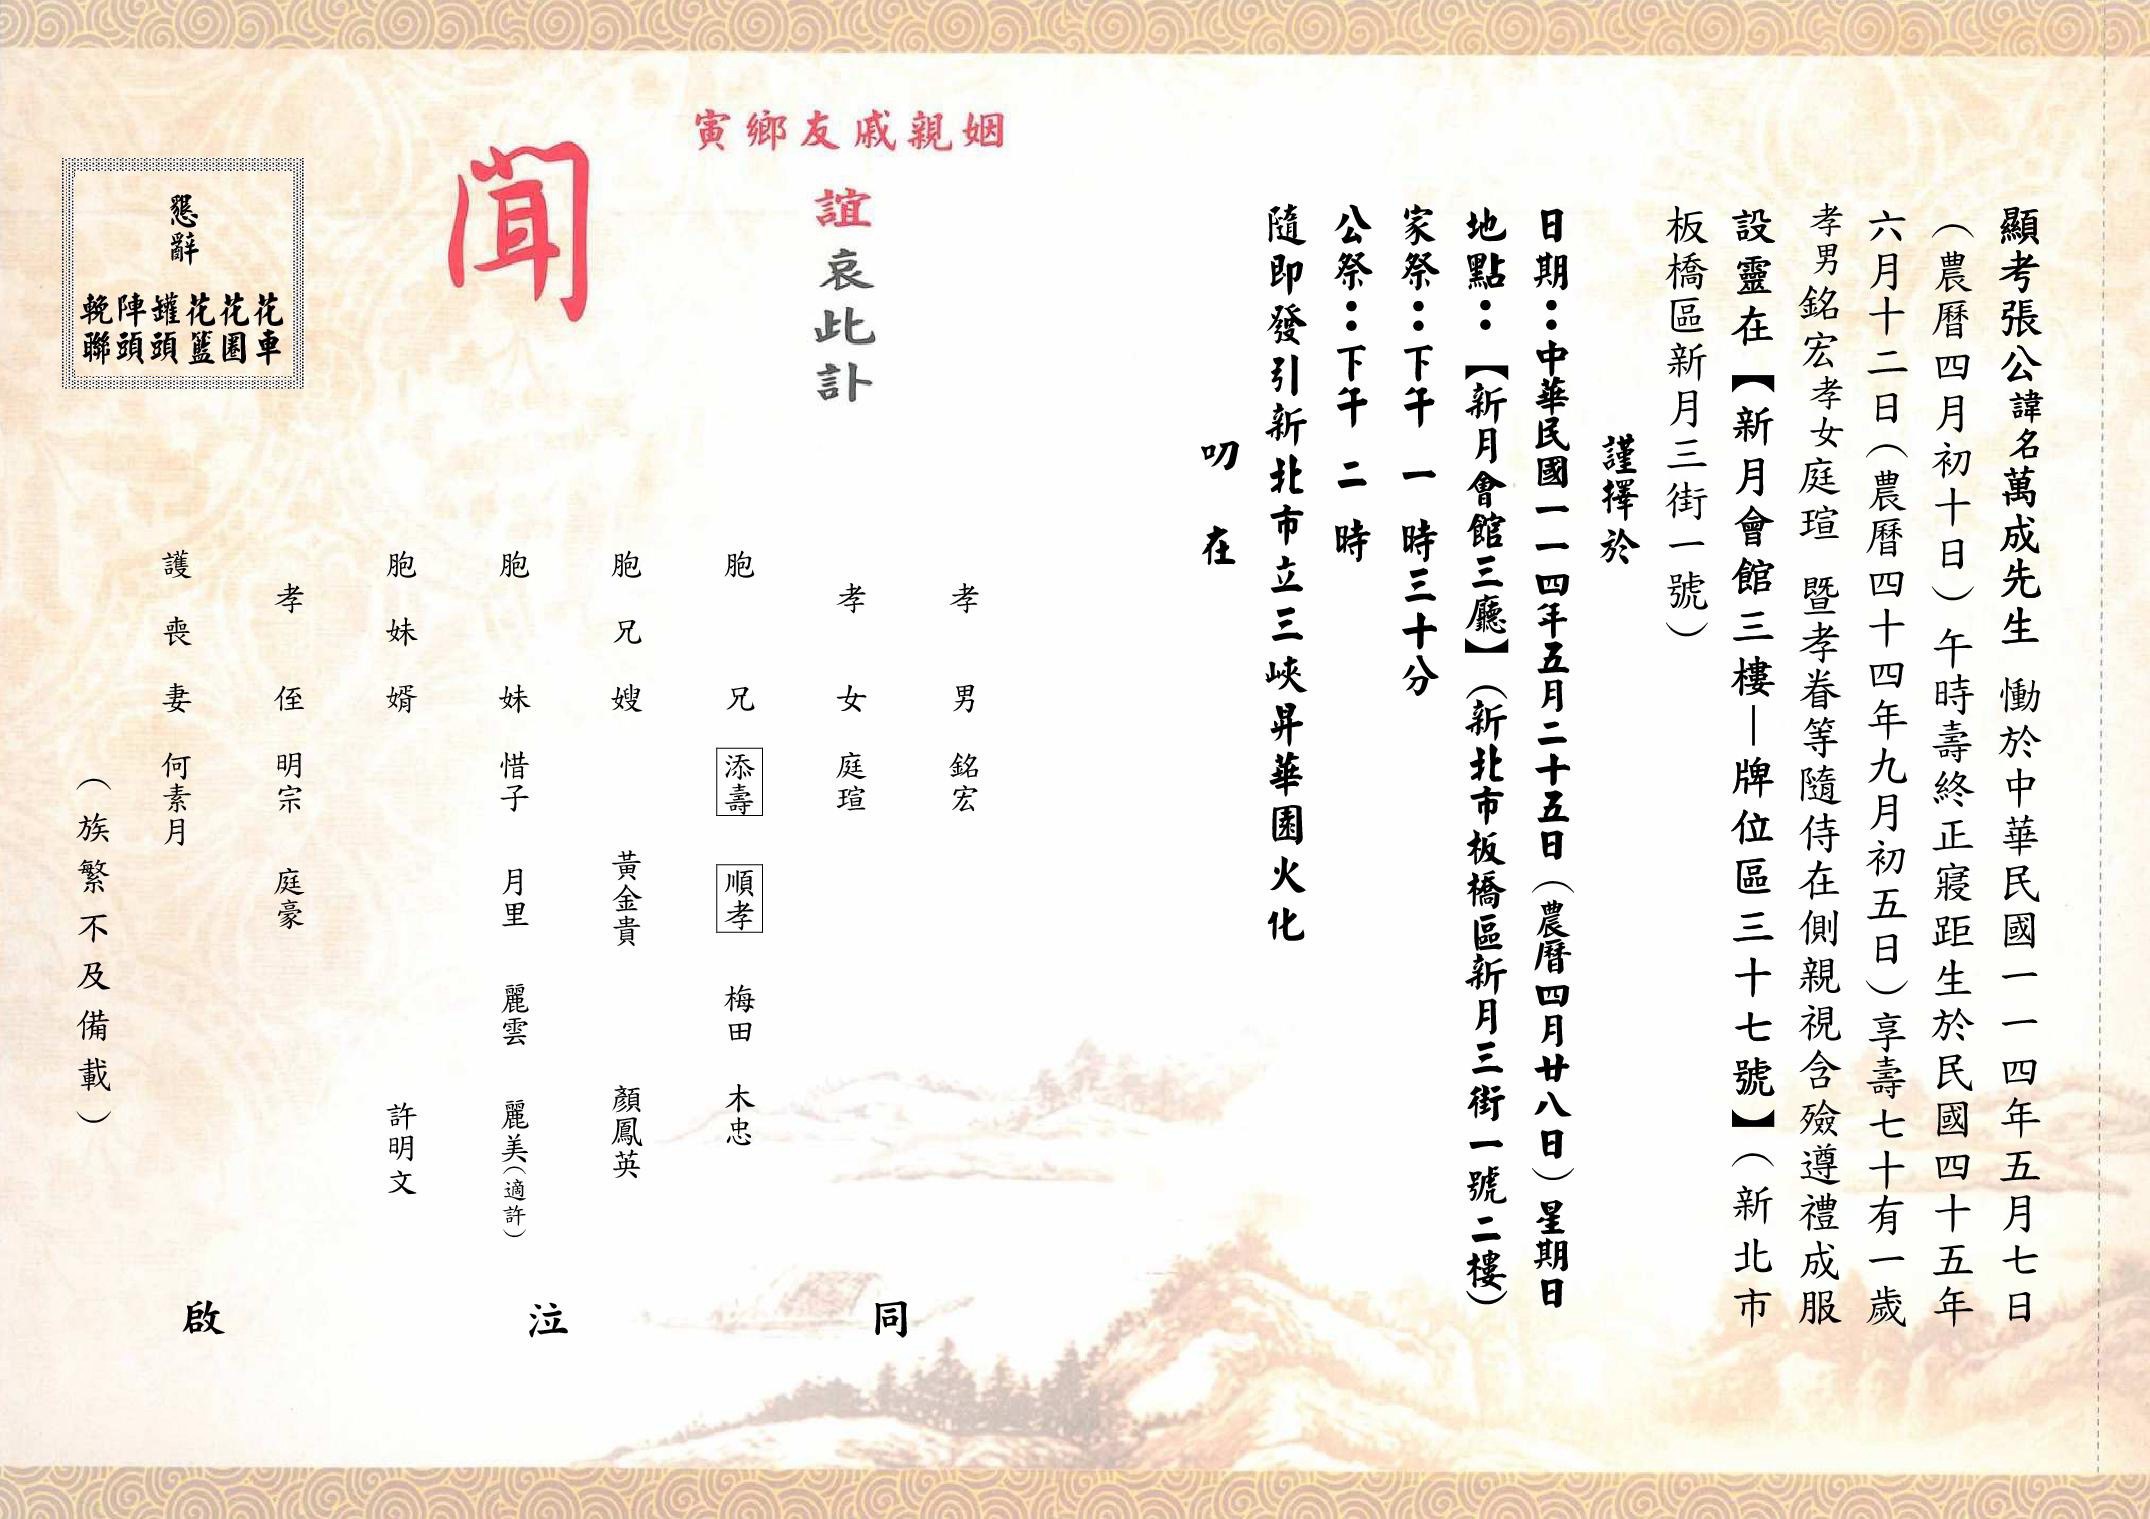 顯考張公諱名萬成先生 慟於中華民國一一四年五月七日
（農曆四月初十日）午時壽終正寢距生於民國四十五年
六月十二日（農曆四十四年九月初五日）享壽七十有一歲
孝男銘宏孝女庭瑄 暨孝眷等隨侍在側親視含殮遵禮成服
設靈在【新月會館三樓—牌位區三十七號】（新北市
板橋區新月三街一號）
謹擇於
日期：中華民國一一四年五月二十五日（農曆四月廿八日）星期日
地點：【新月會館三廳】（新北市板橋區新月三街一號二樓）
家祭：下午 一 時三十分
公祭：下午 二 時
隨即發引新北市立三峽昇華園火化
叨 在
姻親戚友鄉寅
誼哀此訃
聞
孝 男 銘宏
孝 女 庭瑄
胞 兄 添壽 順孝 梅田 木忠
胞兄嫂 黃金貴 顏鳳英
胞 妹 惜子 月里 麗雲 麗美（適許）
胞妹婿 許明文
孝 侄 明宗 庭豪
護喪妻 何素月
（族繁不及備載）
同 泣 啟
懇辭
花車
花圈
花籃
罐頭
陣頭
輓聯